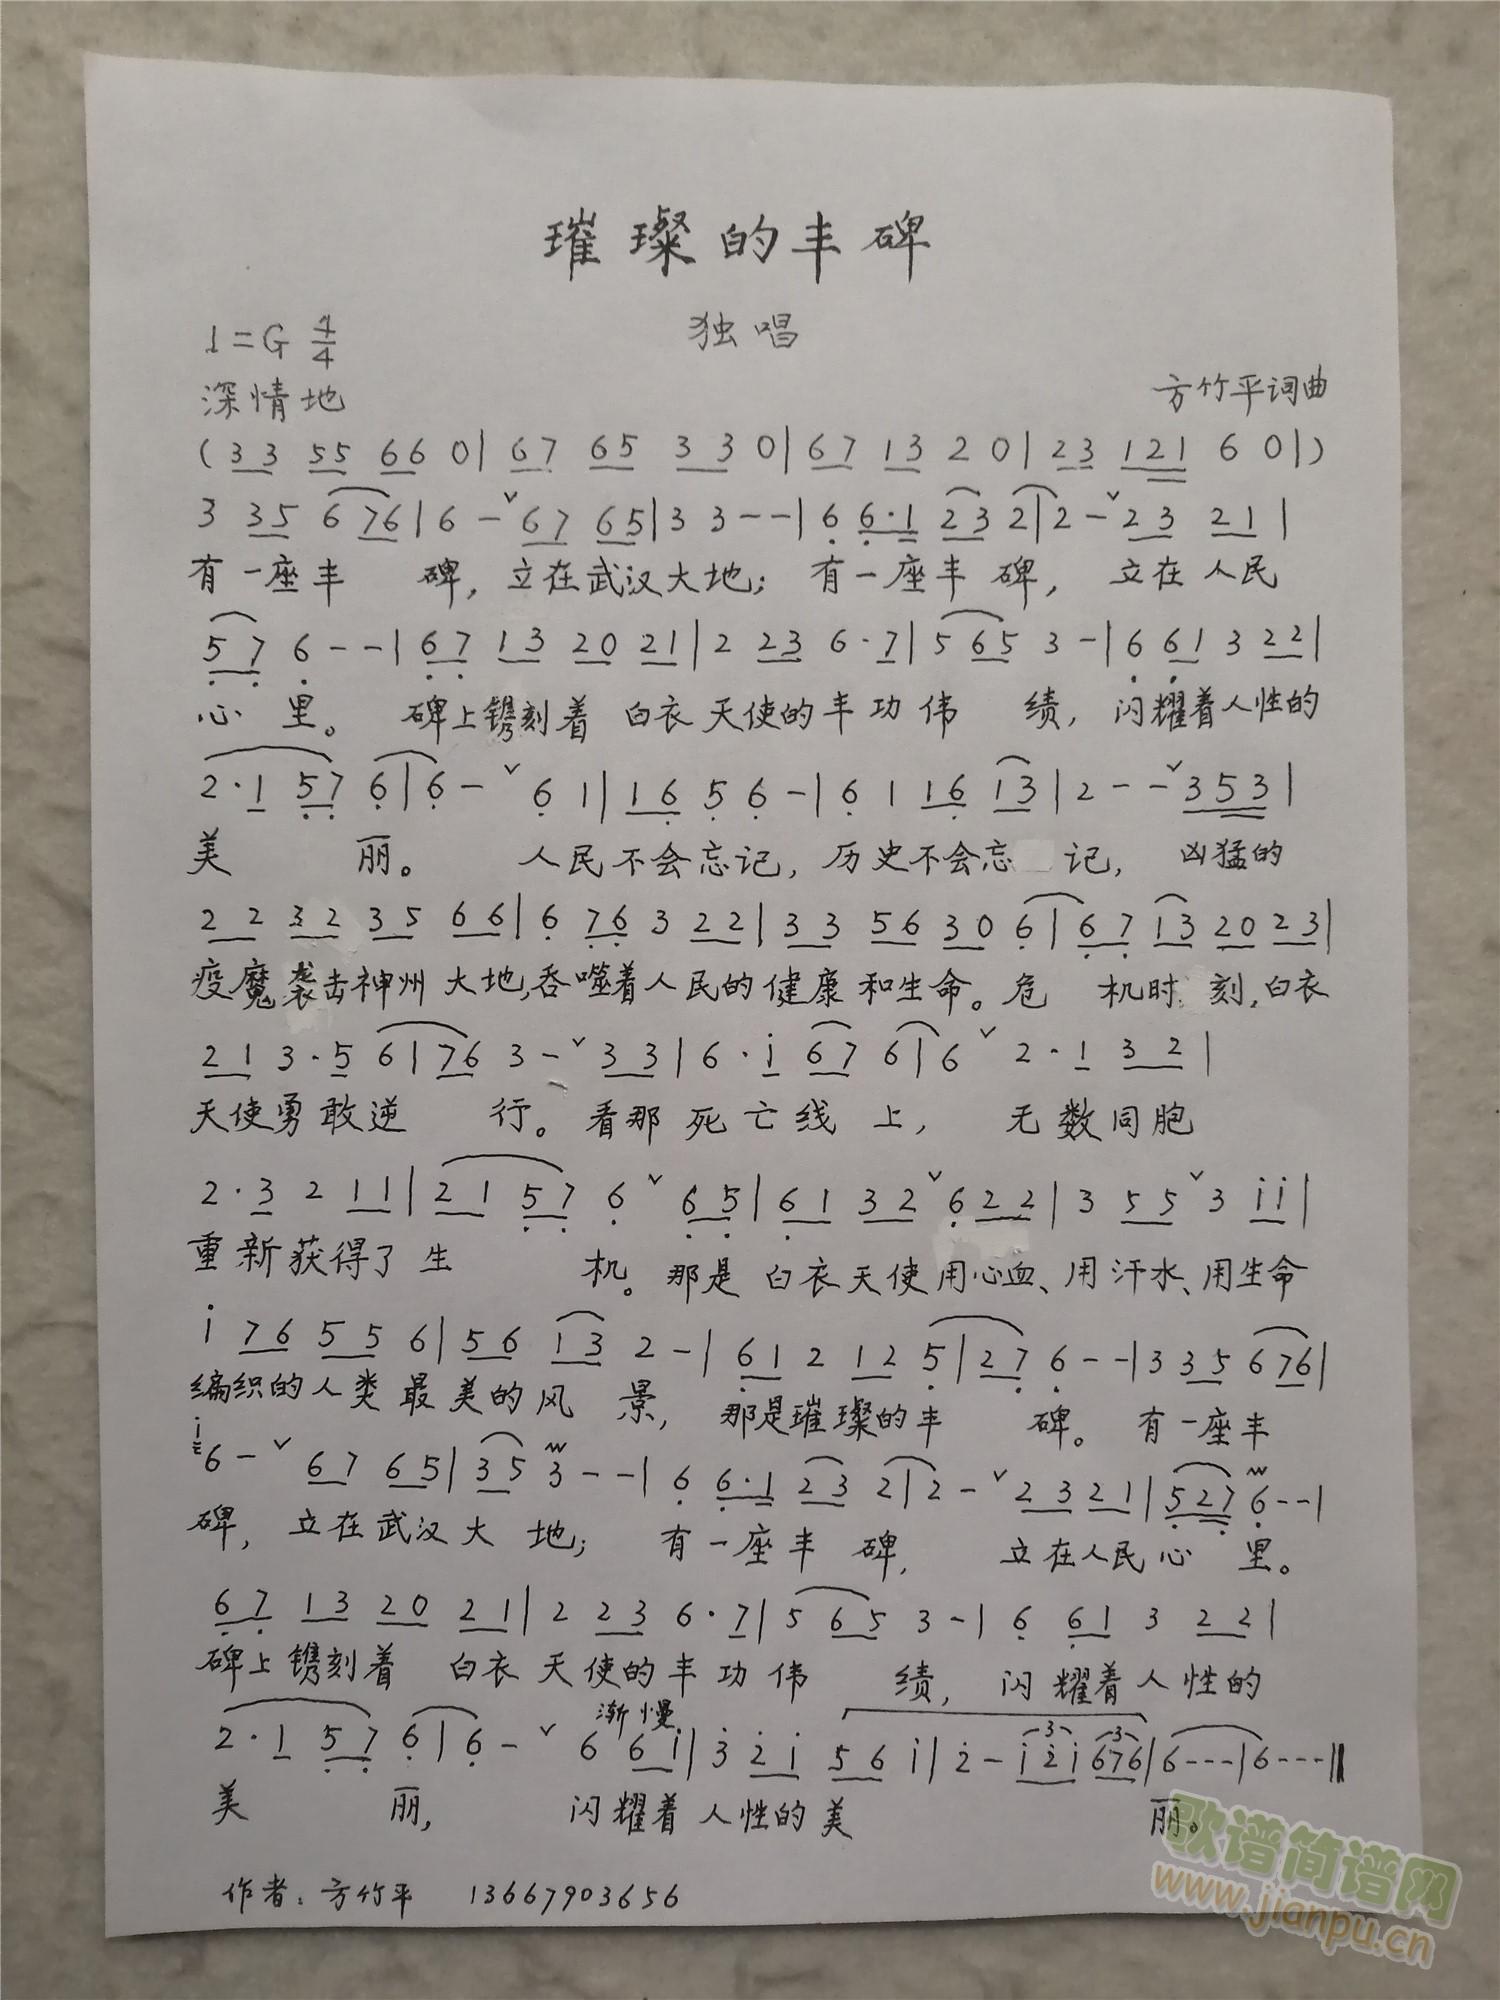 璀璨的丰碑
独唱
1=G 4/4
深情地
方竹平词曲
(33 55 66 0|67 65 33 0|67 13 2 0|23 121 6 0|)
3 35 6 76|6 -ˇ67 65|3 3 - -|6 6·1 23 2|2 -ˇ23 21|
有一座丰 碑，立在武汉大地；有一座丰碑，立在人民
57 6 - -|67 13 20 21|2 23 6·7|5 65 3 -|6 61 3 22|
心里。碑上镌刻着 白衣天使的丰功伟 绩，闪耀着人性的
2·1 57 6|6 -ˇ6 1|16 5 6 -|6 1 16 13|2 - -ˇ353|
美 丽。 人民不会忘记，历史不会忘记，凶猛的
22 32 35 66|6 76 3 22|33 56 30 6|67 13 20 23|
疫魔袭击神州大地，吞噬着人民的健康和生命。危 机时刻，白衣
21 3·5 6|76 3 -ˇ33|6·i 67 6|6ˇ2·1 32|
天使勇敢逆 行。看那死亡线上，无数同胞
2·3 2 11|21 57 6ˇ65|61 32ˇ6 22|3 55ˇ3 ii|
重新获得了生 机。那是白衣天使用心血、用汗水、用生命
i 76 55 6|56 13 2 -|61 2 12 5|27 6 - -|3 35 6 76|
编织的人类最美的风 景，那是璀璨的丰 碑。有一座丰
i 6 -ˇ67 65|35 3 - -|6 6·1 23 2|2 -ˇ23 21|527 6 - -|
碑，立在武汉大 地；有一座丰碑，立在人民心 里。
67 13 20 21|2 23 6·7|5 65 3 -|6 61 3 22|
碑上镌刻着 白衣天使的丰功伟 绩，闪耀着人性的
渐慢
2·1 57 6|6 -ˇ6 6i|3 2i 56 i|2 - i2i 676|6 - - -|6 - - -‖
美 丽，闪耀着人性的美 丽。
作者：方竹平 13667903656
歌谱简谱网
www.jianpu.cn